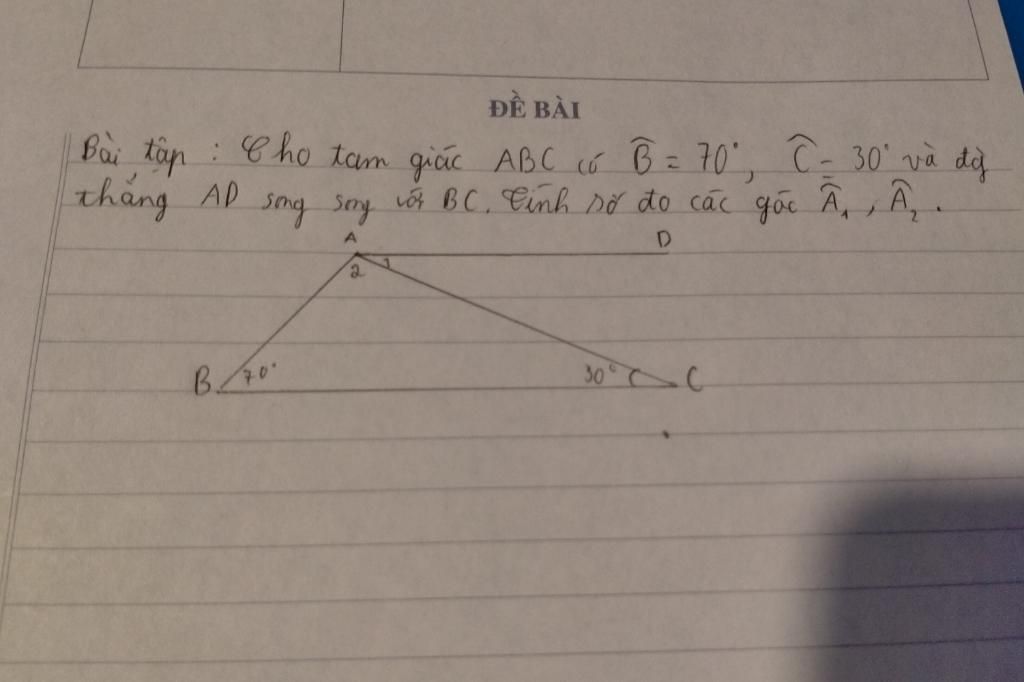 ĐỀ BÀI
Bài tập : Cho tam giác ABC có B̂ = 70°, Ĉ = 30° và đg̀
thẳng AD song song với BC. Tính số đo các góc Â₁ , Â₂ .
A D
2 1
B 70° 30° C